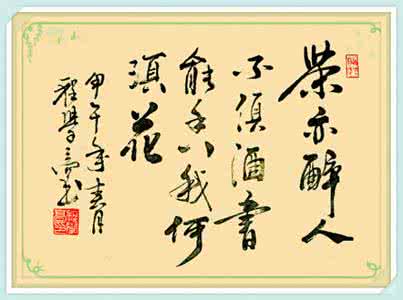 茶亦醉人
不须酒書
能香我何
须花
甲午年春月
程學